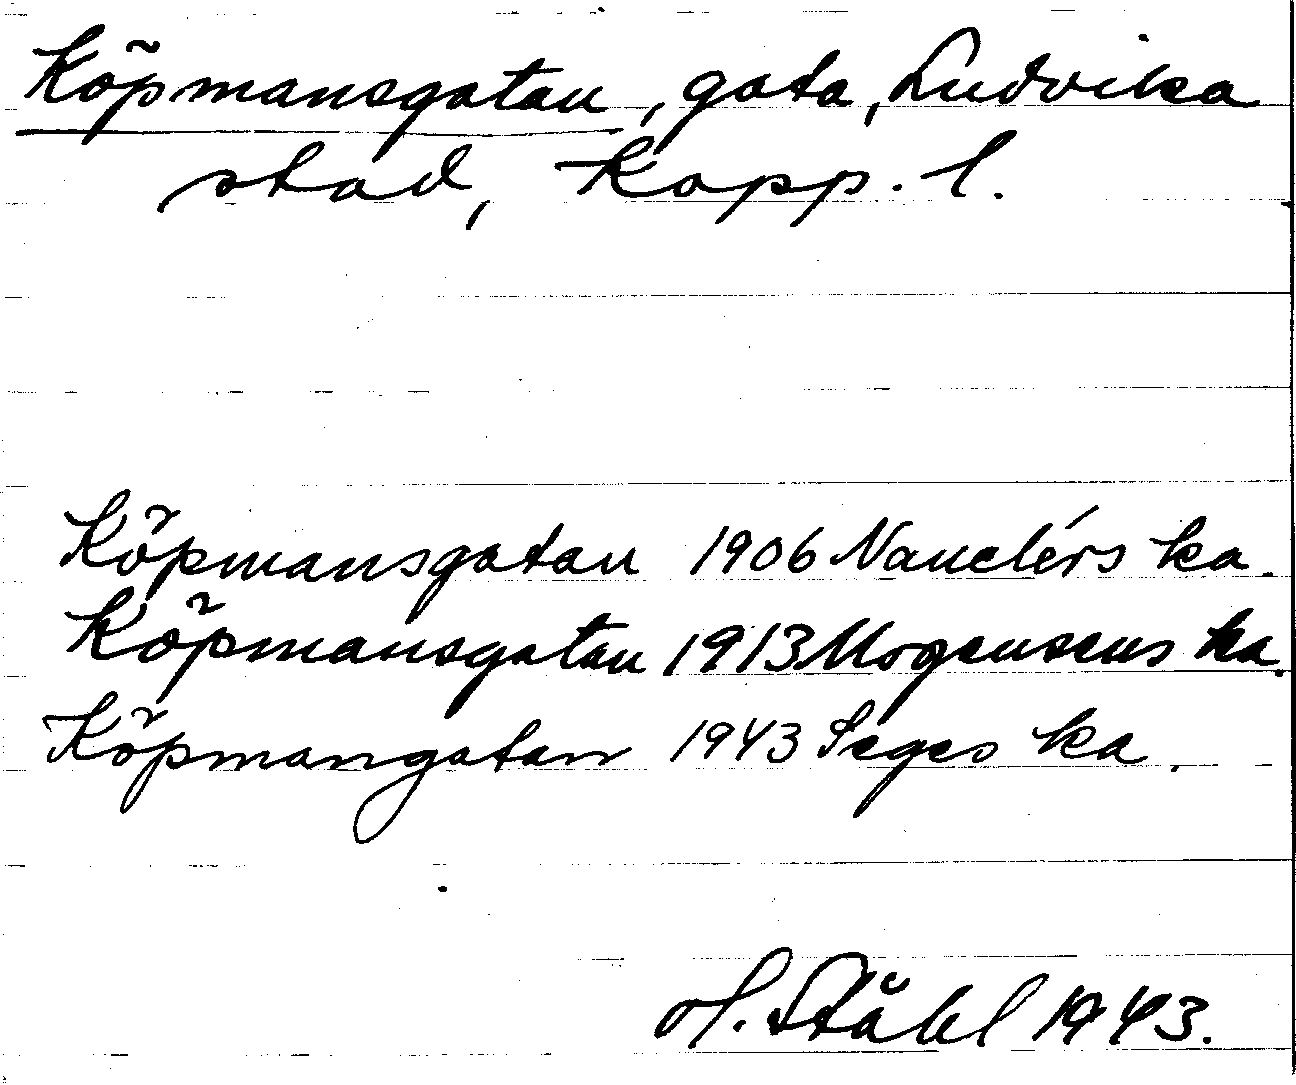 Köpmansgatan, gata, Ludvika
stad, Kopp. l.
Köpmansgatan 1906 Nauclérs ka.
Köpmansgatan 1913 Mogensens ka.
Köpmangatan 1943 Seges ka.
H. Ståhl 1943.